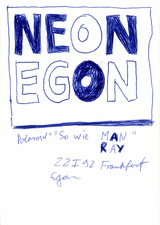 NEON
EGON
"So wie MAN"
RAY
22 I 92 Frankfurt
Egon